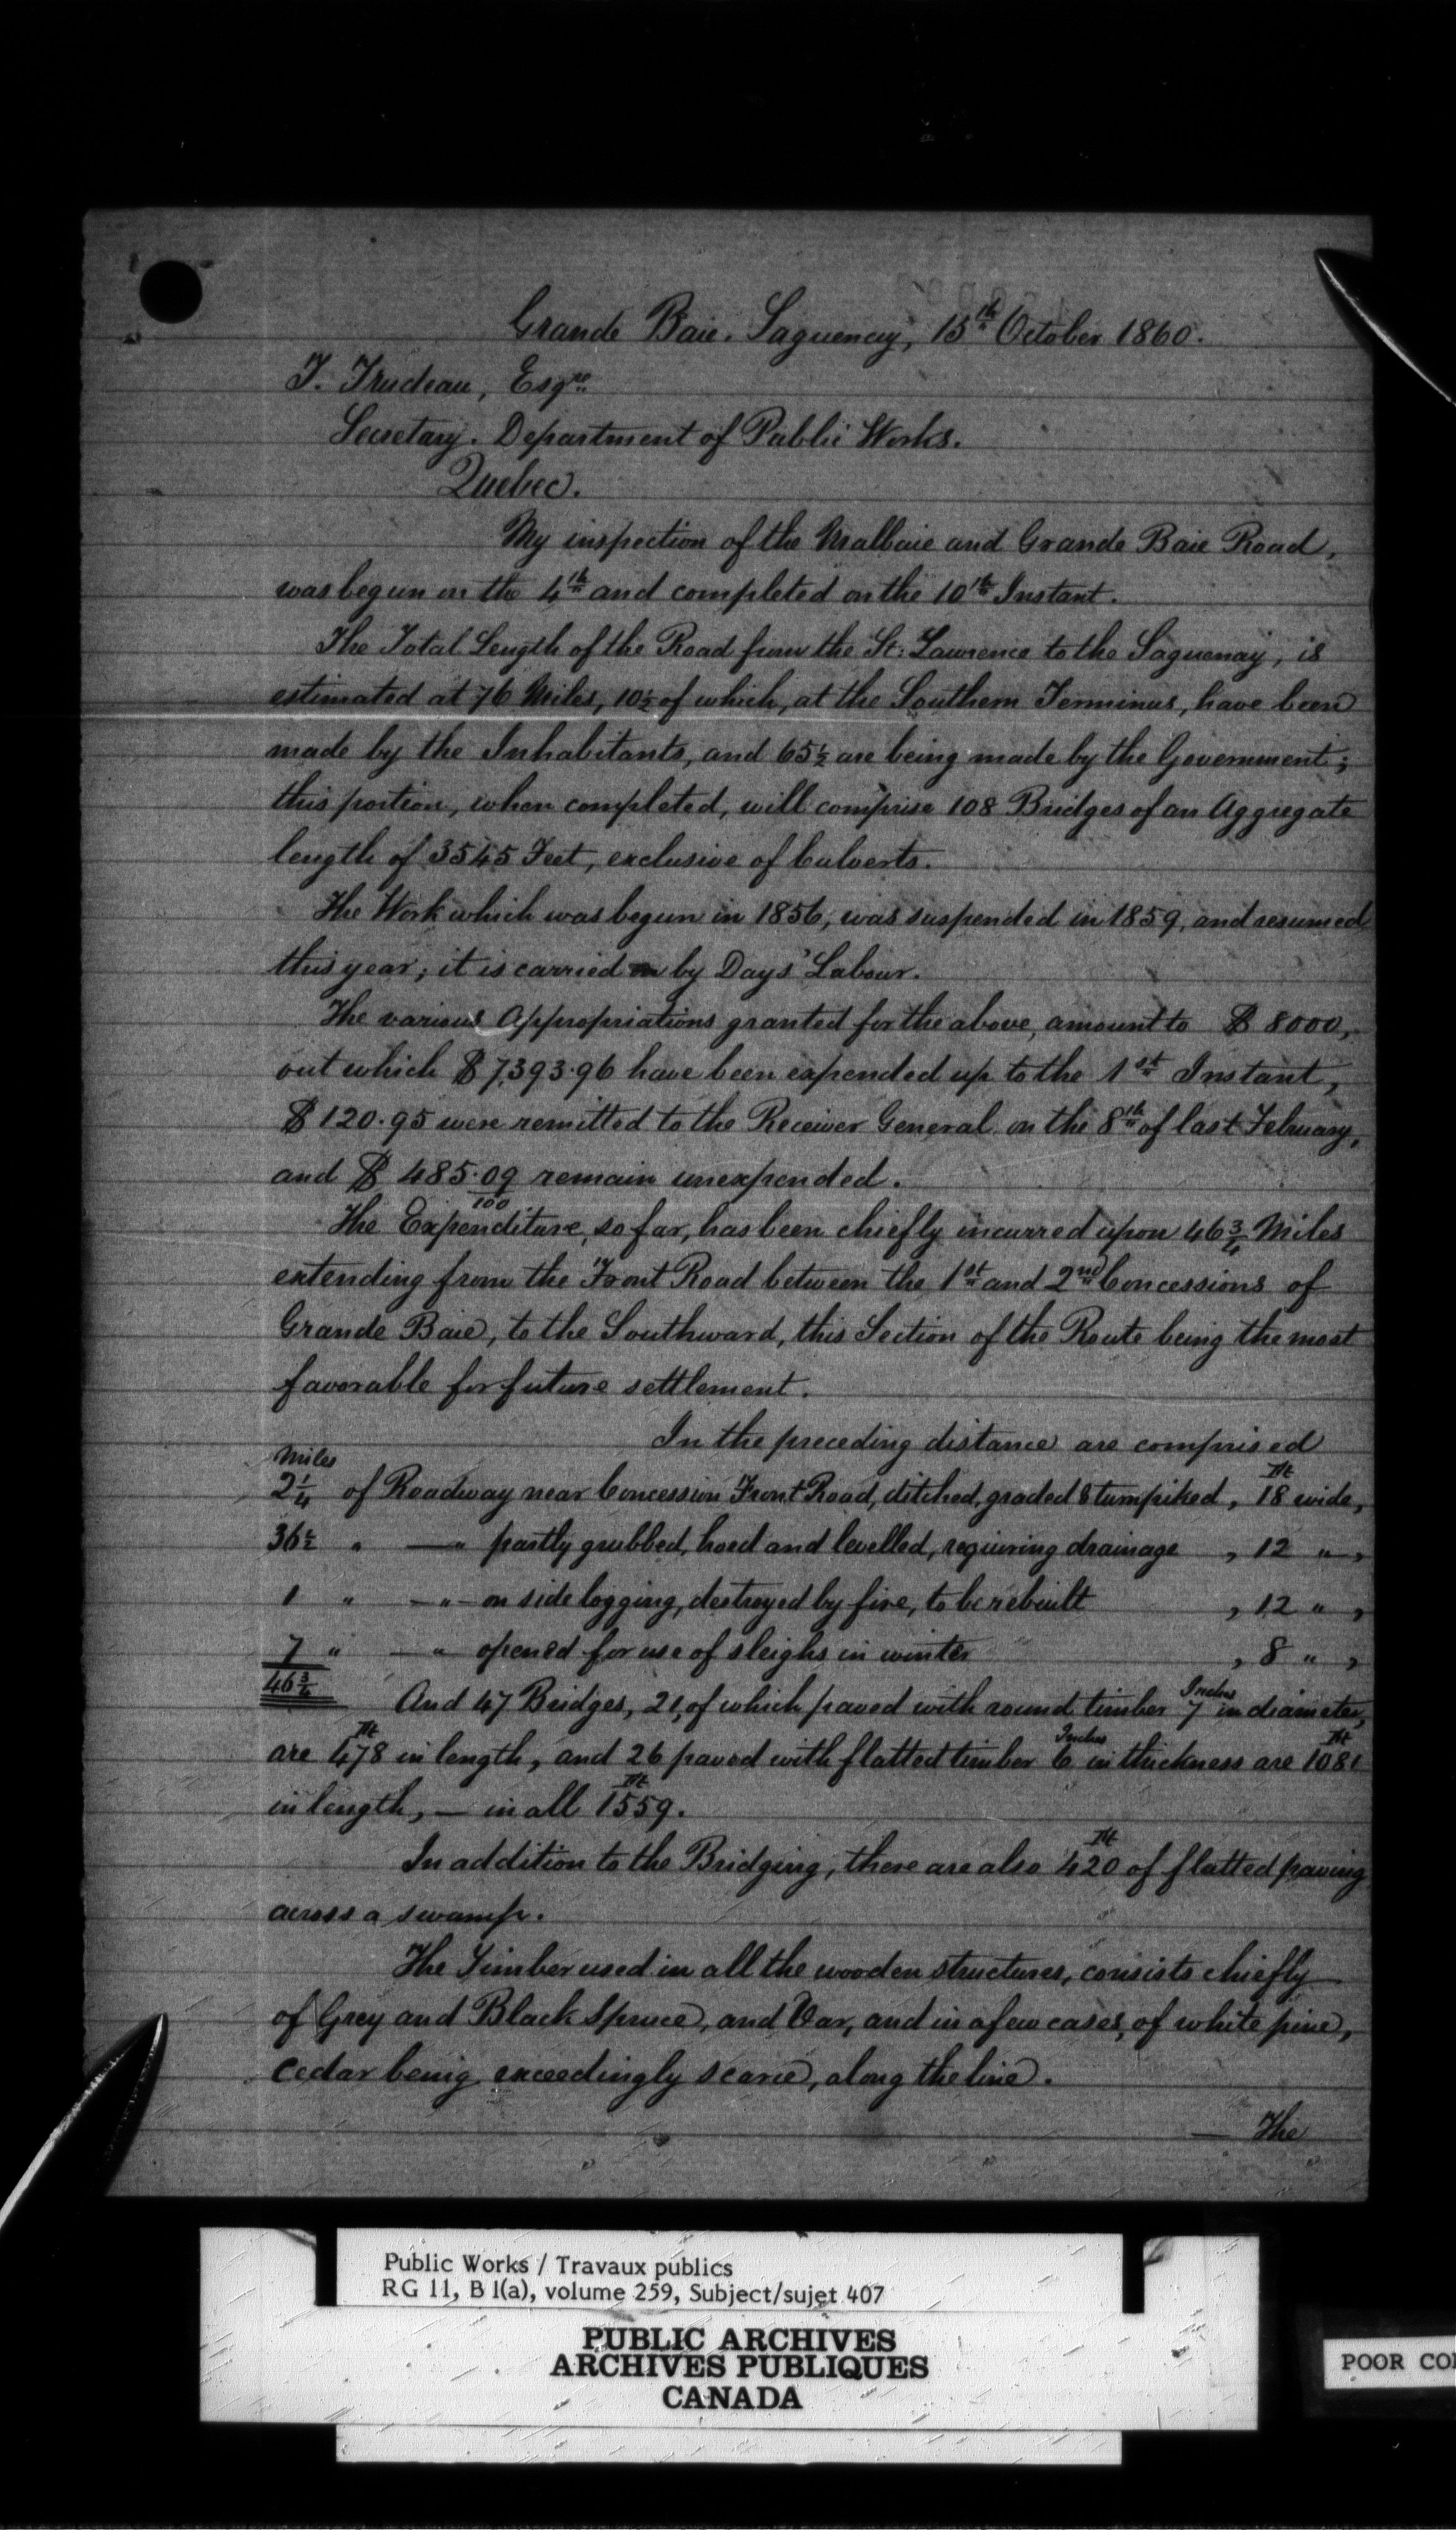 Grande Baie. Saguenay, 15th October 1860.
T. Trudeau, Esqre
Secretary. Department of Public Works.
Quebec.
My inspection of the Malbaie and Grande Baie Road,
was begun on the 4th and completed on the 10th Instant.
The Total Length of the Road from the St: Lawrence to the Saguenay, is
estimated at 76 Miles, 10½ of which, at the Southern Terminus, have been
made by the Inhabitants, and 65½ are being made by the Government;
this portion, when completed, will comprise 108 Bridges of an Aggregate
length of 3545 Feet, exclusive of Culverts.
The Work which was begun in 1856, was suspended in 1859, and resumed
this year; it is carried on by Days' Labour.
The various Appropriations granted for the above, amount to $ 8000,
out which $ 7,393.96 have been expended up to the 1st Instant,
$ 120.95 were remitted to the Receiver General on the 8th of last February,
and $ 485.09/100 remain unexpended.
The Expenditure, so far, has been chiefly incurred upon 46¾ Miles
extending from the Front Road between the 1st and 2nd Concessions of
Grande Baie, to the Southward, this Section of the Route being the most
favorable for future settlement.
In the preceding distance are comprised
Miles
2¼ of Roadway near Concession Front Road, ditched, graded & turnpiked, 18 Ft wide,
36½ " —"— partly grubbed, hoed and levelled, requiring drainage , 12 " ,
1 " —"— on side logging, destroyed by fire, to be rebuilt , 12 " ,
7 " —"— opened for use of sleighs in winter , 8 " ,
46¾ And 47 Bridges, 21, of which paved with round timber 7 Inches in diameter,
are 478 Ft in length, and 26 paved with flatted timber 6 Inches in thickness are 1081 Ft
in length, — in all 1559 Ft.
In addition to the Bridging, there are also 420 Ft of flatted paving
across a swamp.
The Timber used in all the wooden structures, consists chiefly
of Grey and Black Spruce, and Var, and in a few cases, of white pine,
Cedar being exceedingly scarce, along the line.
— The
Public Works / Travaux publics
RG 11, B 1(a), volume 259, Subject/sujet 407
PUBLIC ARCHIVES
ARCHIVES PUBLIQUES
CANADA
POOR CO